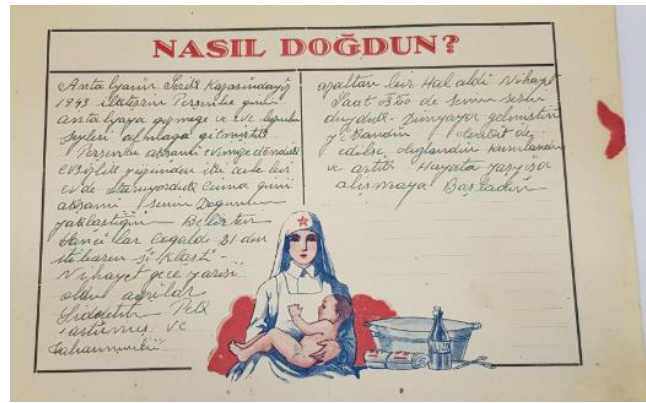 NASIL DOĞDUN?
Antalyanın Kazasındayız
1943 Perşembe günü
Antalyaya gitmeğe ve eve lüzumlu
şeyleri almağa gitmiştik
Perşembe akşamı evimize döndük
evsizlik yüzünden iki aile bir
evde oturuyorduk Cuma günü
akşamı senin Doğumun
yaklaştığını Belirten
Sancılar Çoğaldı 21 den
itibaren Sıklaştı
Nihayet gece yarısı
oldu ağrılar
Şiddetini Pek
artırmış ve
tahammülü
azaltan bir Hal aldı Nihayet
Saat 0350 de senin sesini
duyduk Dünyaya gelmiştin
Yıkandın
edildi
ve artık Hayata yaşayışa
alışmaya Başladın